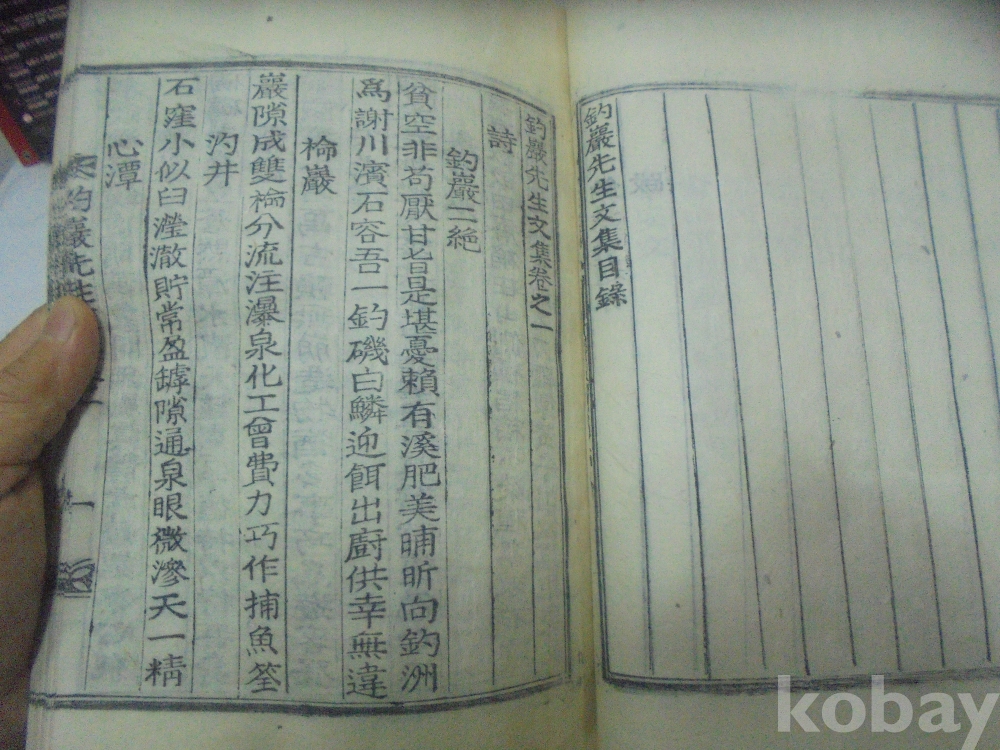 釣巖先生文集目錄
釣巖先生文集卷之一
詩
釣巖二絶
貧空非苟厭甘旨是堪憂賴有溪肥美晡昕向釣洲
爲謝川濱石容吾一釣磯白鱗迎餌出廚供幸無違
棆巖
巖隙成雙棆分流注瀑泉化工曾費力巧作捕魚筌
汋井
石窪小似臼瀅澈貯常盈罅隙通泉眼微滲天一精
心潭
釣巖先生
一
kobay